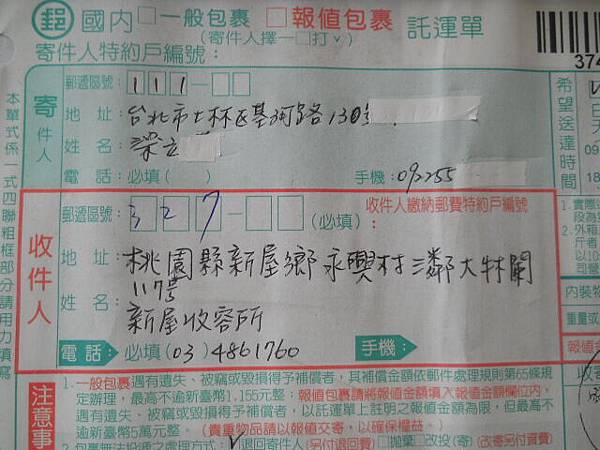 郵 國內 □一般包裹 □報值包裹 託運單
(寄件人擇一□打v)
寄件人特約戶編號：
374
本單式係一式四聯粗框部分請用力填寫
寄件人
郵遞區號：111-□□
地址：台北市士林區基河路130號
姓名：梁立
電話：必填( ) 手機：092255
希望送達時間
09
18
收件人
郵遞區號：327-□□(必填) 收件人繳納郵費特約戶編號
地址：桃園縣新屋鄉永興村 鄰大牛欄
117號
姓名：新屋收容所
電話：必填(03)4861760 手機：
內裝物
重量或
報值金
注意事
1.一般包裹遇有遺失、被竊或毀損得予補償者，其補償金額依郵件處理規則第65條規
定辦理，最高不逾新臺幣1,155元整；報值包裹請將報值金額填入報值金額欄位內，
遇有遺失、被竊或毀損得予補償者，以託運單上註明之報值金額為限，但最高不
逾新臺幣5萬元整。(貴重物品請以報值交寄，以確保權益。)
2.包裹無法投遞之處理方式：☑退回寄件人(另付退回費) □拋棄□改投(寄)(改寄另付資費)